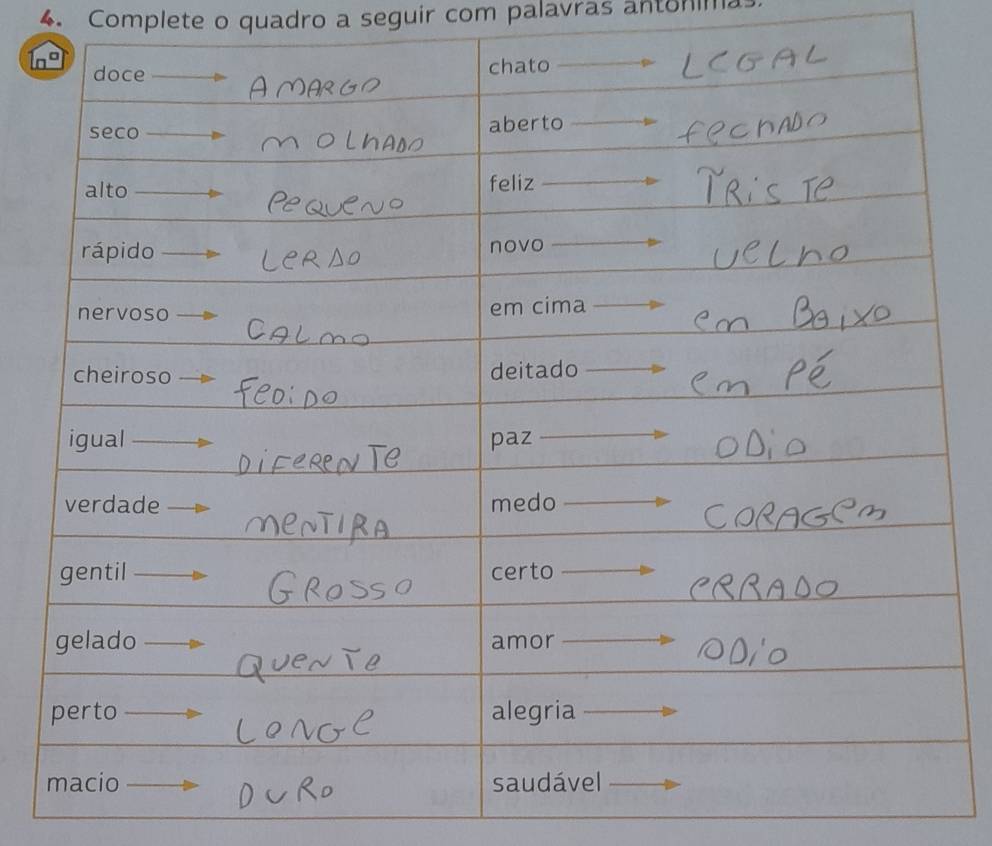 4. Complete o quadro a seguir com palavras antônimas.
doce AMARGO chato LEGAL
seco MOLHADO aberto fechADO
alto PeQUENO feliz TRiSTe
rápido LeRDO novo VeLhO
nervoso CALMO em cima em BaiXO
cheiroso FeDiDO deitado em Pé
igual DiFeReNTe paz ODiO
verdade MeNTIRA medo CORAGem
gentil GROSSO certo eRRADO
gelado QUeNTe amor ODiO
perto LONGe alegria
macio DURO saudável